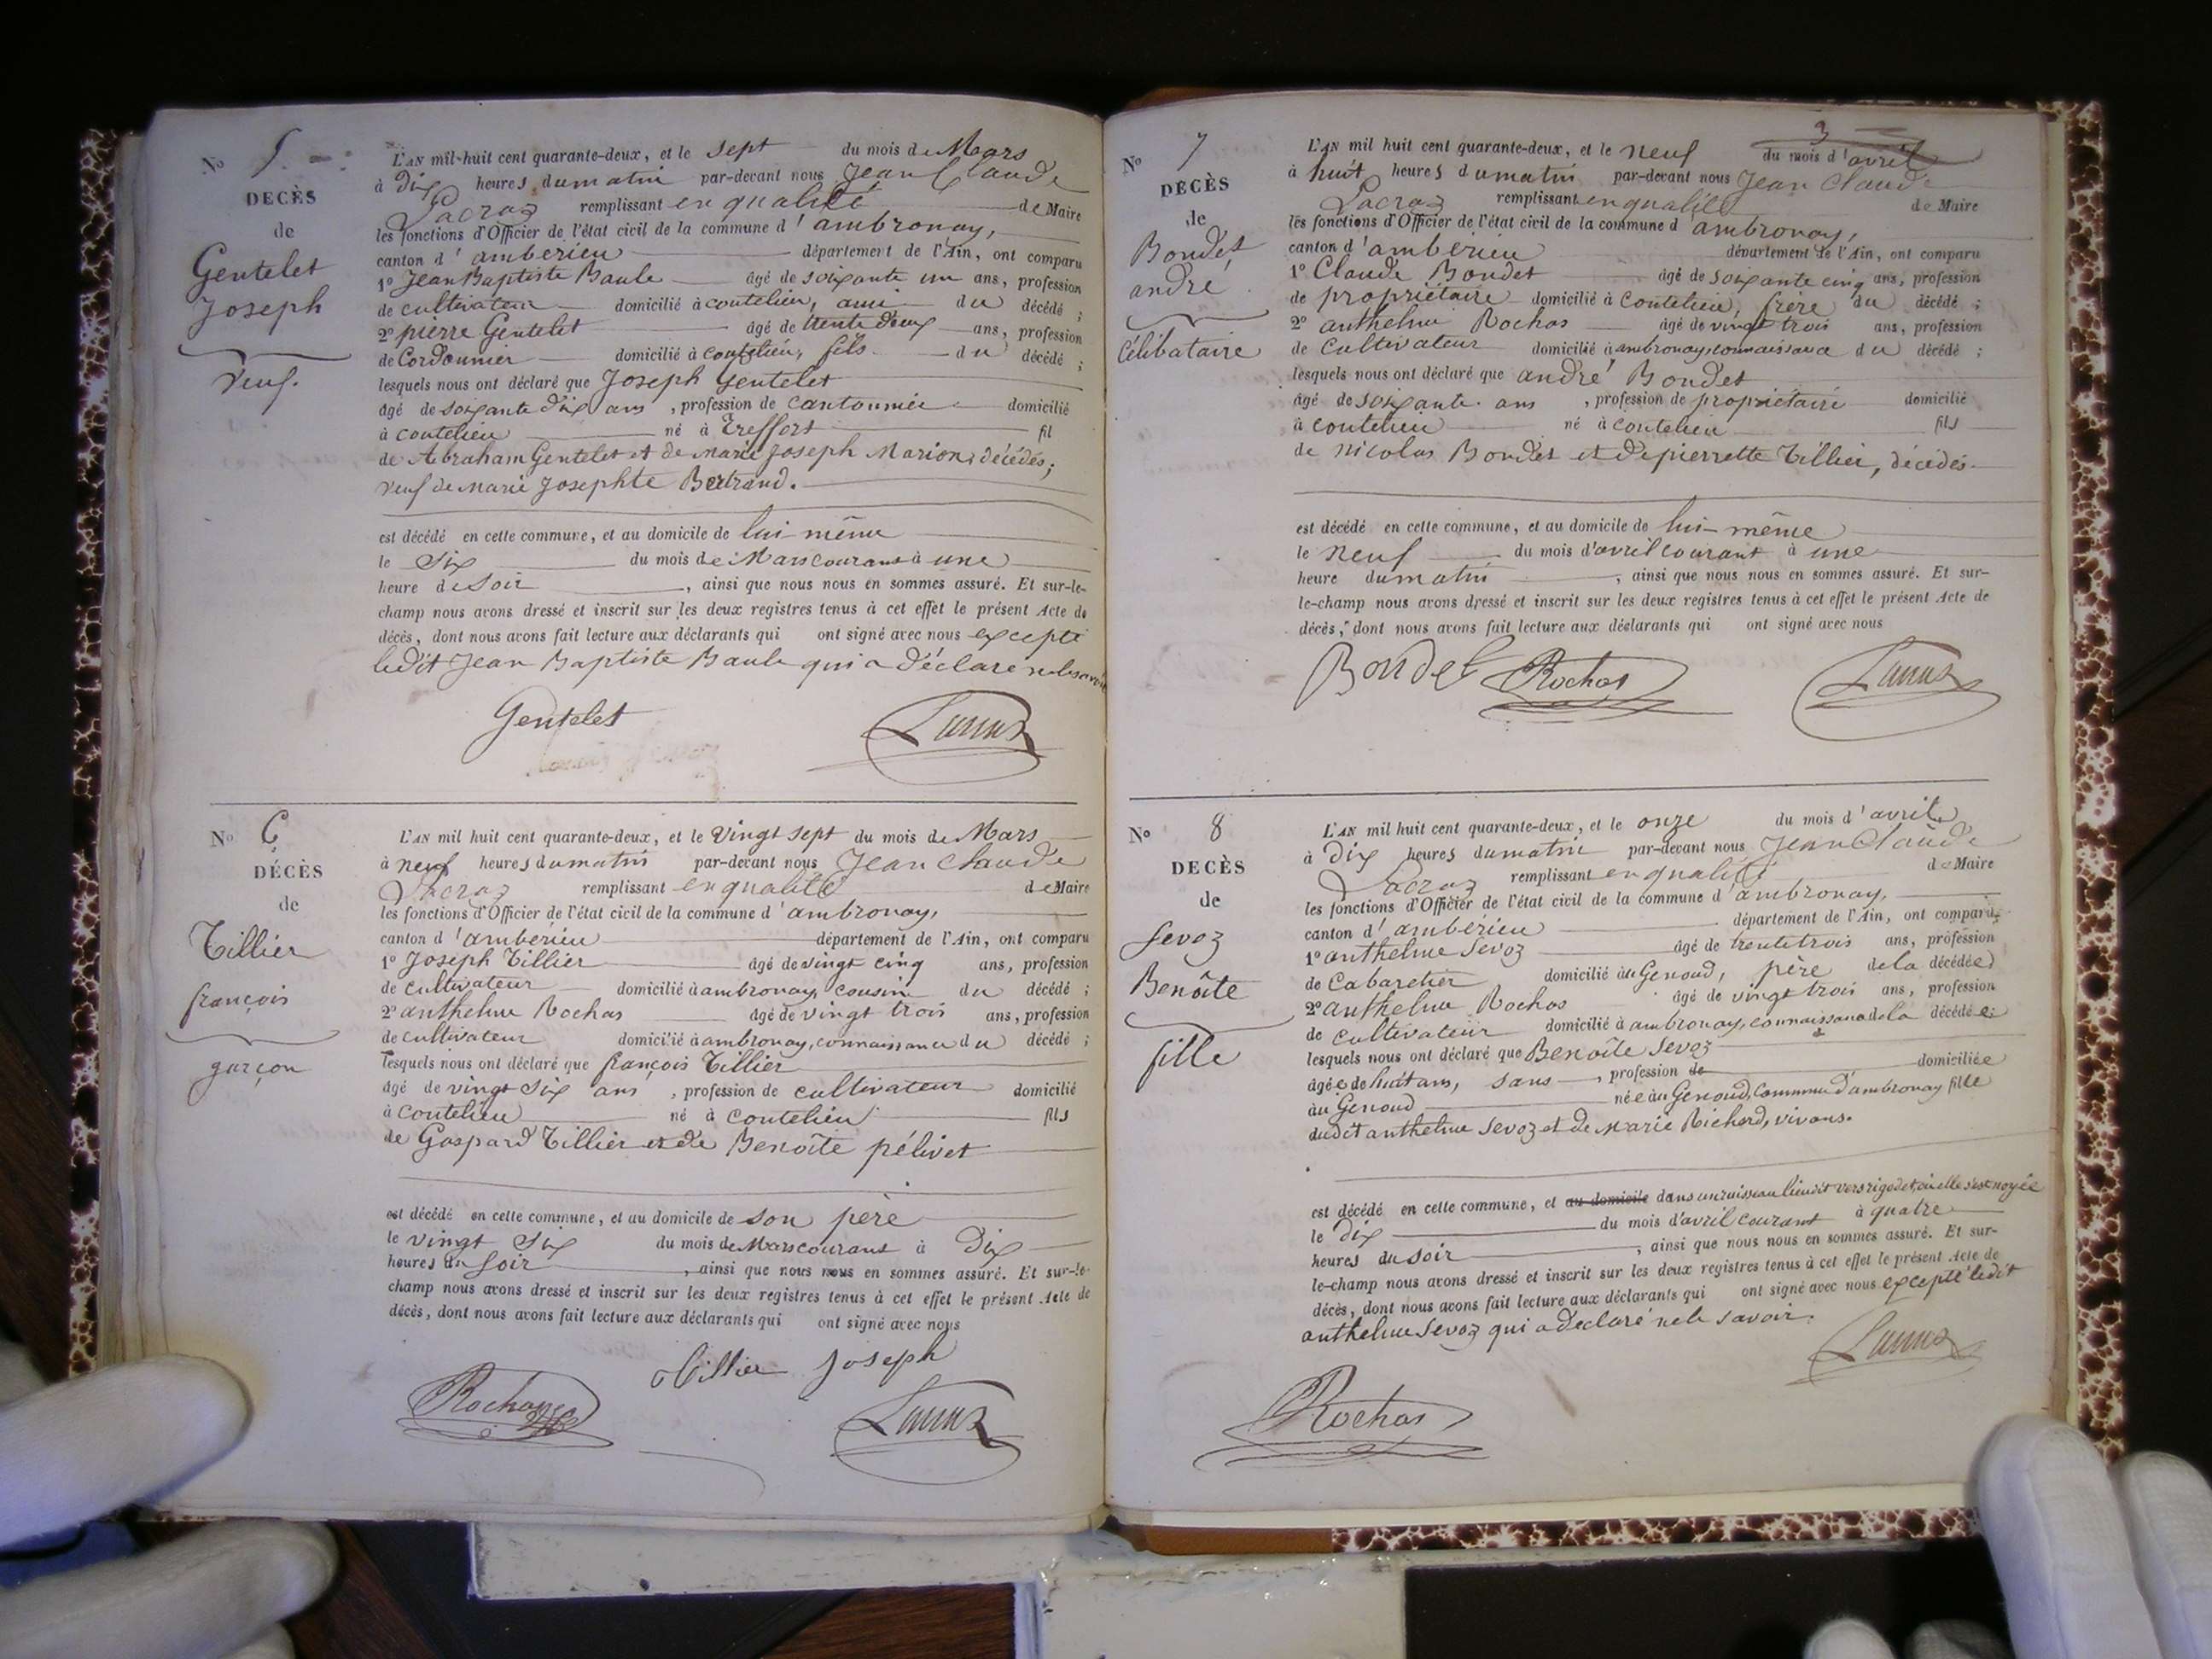 N° 5
DÉCÈS
de
Gentelet
Joseph
veuf.
L'AN mil huit cent quarante-deux, et le sept du mois de Mars
à Dix heures du matin par-devant nous Jean Claude
Lacraz remplissant en qualité de Maire
les fonctions d'Officier de l'état civil de la commune d'ambronay,
canton d'ambérieu département de l'Ain, ont comparu
1° Jean Baptiste Baule âgé de soixante un ans, profession
de cultivateur domicilié à coutelieu, ami du décédé ;
2° pierre Gentelet âgé de trente deux ans, profession
de Cordonnier domicilié à coutelieu, fils du décédé ;
lesquels nous ont déclaré que Joseph Gentelet
âgé de soixante dix ans, profession de cantonnier domicilié
à coutelieu né à Treffort fil
de Abraham Gentelet et de marie Joseph Marion, décédés ;
veuf de marie Josephte Bertrand.
est décédé en cette commune, et au domicile de lui même
le Six du mois de Mars courant à une
heure de soir, ainsi que nous nous en sommes assuré. Et sur-le-
champ nous avons dressé et inscrit sur les deux registres tenus à cet effet le présent Acte de
décès, dont nous avons fait lecture aux déclarants qui ont signé avec nous excepté
ledit Jean Baptiste Baule qui a déclaré ne le savoir
Gentelet
N° 6
DÉCÈS
de
Tillier
françois
garçon
L'AN mil huit cent quarante-deux, et le vingt sept du mois de Mars
à neuf heures du matin par-devant nous Jean Claude
Lacraz remplissant en qualité de Maire
les fonctions d'Officier de l'état civil de la commune d'ambronay,
canton d'ambérieu département de l'Ain, ont comparu
1° Joseph Tillier âgé de vingt cinq ans, profession
de cultivateur domicilié à ambronay, cousin du décédé ;
2° anthelme Rochas âgé de vingt trois ans, profession
de cultivateur domicilié à ambronay, connaissance du décédé ;
lesquels nous ont déclaré que françois Tillier
âgé de vingt six ans, profession de cultivateur domicilié
à coutelieu né à coutelieu fils
de Gaspard Tillier et de Benoîte pélivet
est décédé en cette commune, et au domicile de son père
le vingt Six du mois de Mars courant à Dix
heures du soir, ainsi que nous nous en sommes assuré. Et sur-le-
champ nous avons dressé et inscrit sur les deux registres tenus à cet effet le présent Acte de
décès, dont nous avons fait lecture aux déclarants qui ont signé avec nous
Tillier Joseph
Rochas
3
N° 7
DÉCÈS
de
Bondet
andré
Célibataire
L'AN mil huit cent quarante-deux, et le neuf du mois d'avril
à huit heures du matin par-devant nous Jean Claude
Lacraz remplissant en qualité de Maire
les fonctions d'Officier de l'état civil de la commune d'ambronay,
canton d'ambérieu département de l'Ain, ont comparu
1° Claude Bondet âgé de soixante cinq ans, profession
de propriétaire domicilié à Coutelieu, frère du décédé ;
2° anthelme Rochas âgé de vingt trois ans, profession
de cultivateur domicilié à ambronay, connaissance du décédé ;
lesquels nous ont déclaré que andré Bondet
âgé de soixante ans, profession de propriétaire domicilié
à coutelieu né à coutelieu fils
de nicolas Bondet et de pierrette Tillier, décédés.
est décédé en cette commune, et au domicile de lui-même
le neuf du mois d'avril courant à une
heure du matin, ainsi que nous nous en sommes assuré. Et sur-
le-champ nous avons dressé et inscrit sur les deux registres tenus à cet effet le présent Acte de
décès, dont nous avons fait lecture aux déclarants qui ont signé avec nous
Bondet Rochas
N° 8
DÉCÈS
de
Sevoz
Benoîte
fille
L'AN mil huit cent quarante-deux, et le onze du mois d'avril
à Dix heures du matin par-devant nous Jean Claude
Lacraz remplissant en qualité de Maire
les fonctions d'Officier de l'état civil de la commune d'ambronay,
canton d'ambérieu département de l'Ain, ont comparu
1° anthelme Sevoz âgé de trente trois ans, profession
de Cabaretier domicilié au Genoud, père de la décédée ;
2° anthelme Rochas âgé de vingt trois ans, profession
de cultivateur domicilié à ambronay, connaissance de la décédée ;
lesquels nous ont déclaré que Benoîte Sevoz
âgée de huit ans, sans, profession de domiciliée
au Genoud née au Genoud, commune d'ambronay fille
dudit anthelme Sevoz et de Marie Richard, vivans.
est décédé en cette commune, et au domicile dans un ruisseau lieu dit vers rigodet, où elle s'est noyée
le dix du mois d'avril courant à quatre
heures du soir, ainsi que nous nous en sommes assuré. Et sur-
le-champ nous avons dressé et inscrit sur les deux registres tenus à cet effet le présent Acte de
décès, dont nous avons fait lecture aux déclarants qui ont signé avec nous excepté ledit
anthelme Sevoz qui a déclaré ne le savoir.
Rochas